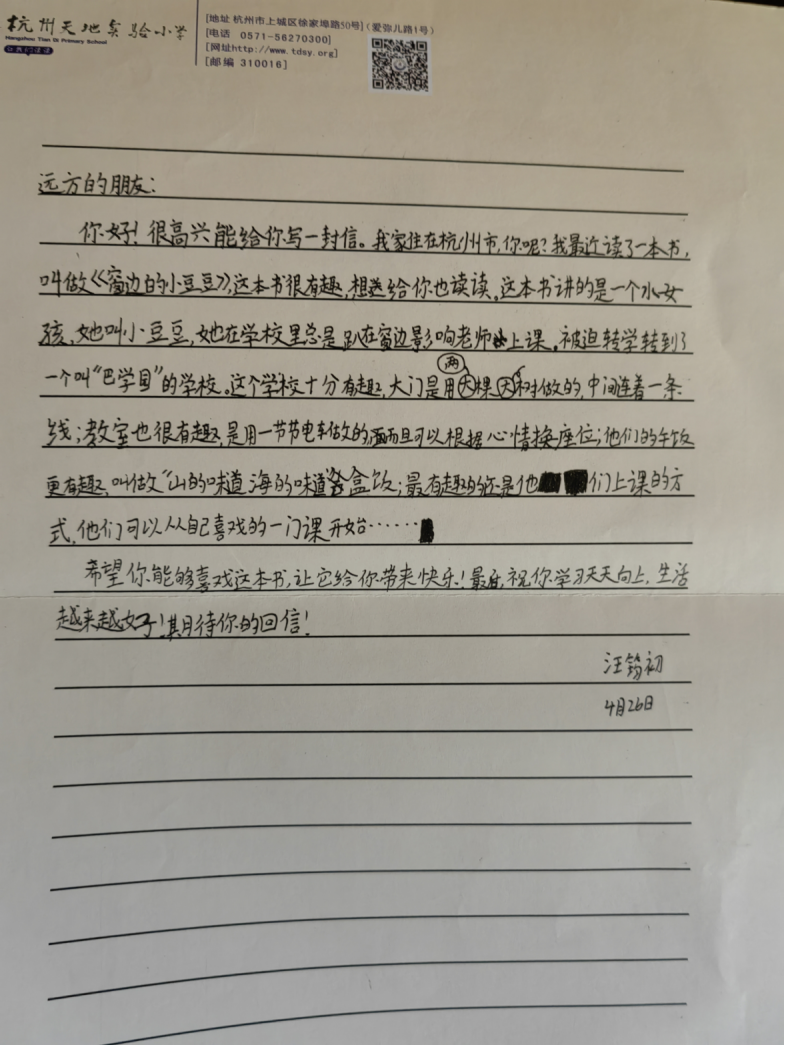 杭州天地实验小学
Hangzhou Tian Di Primary School
[地址 杭州市上城区徐家埠路50号](爱弥儿路1号)
[电话 0571-56270300]
[网址http://www.tdsy.org]
[邮编 310016]
远方的朋友：
你好！很高兴能给你写一封信。我家住在杭州市，你呢？我最近读了一本书，
叫做《窗边的小豆豆》，这本书很有趣，想送给你也读读。这本书讲的是一个小女
孩，她叫小豆豆，她在学校里总是趴在窗边影响老师上课。被迫转学转到了
一个叫“巴学园”的学校。这个学校十分有趣，大门是用两棵树做的，中间连着一条
线；教室也很有趣，是用一节节电车做的，而且可以根据心情换座位；他们的午饭
更有趣，叫做“山的味道海的味道盒饭；最有趣的还是他们上课的方
式，他们可以从自己喜戏的一门课开始……
希望你能够喜戏这本书，让它给你带来快乐！最后，祝你学习天天向上，生活
越来越好！期待你的回信！
汪筠初
4月26日